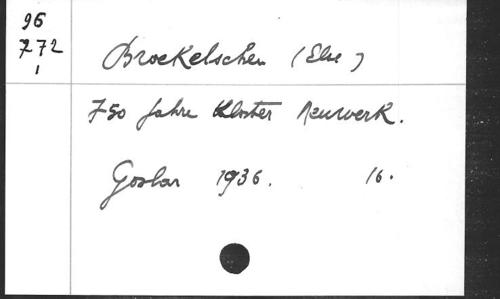 96
772
1
Broekelschen (Else)
750 Jahre Kloster Neuwerk.
Goslar 1936. 16.